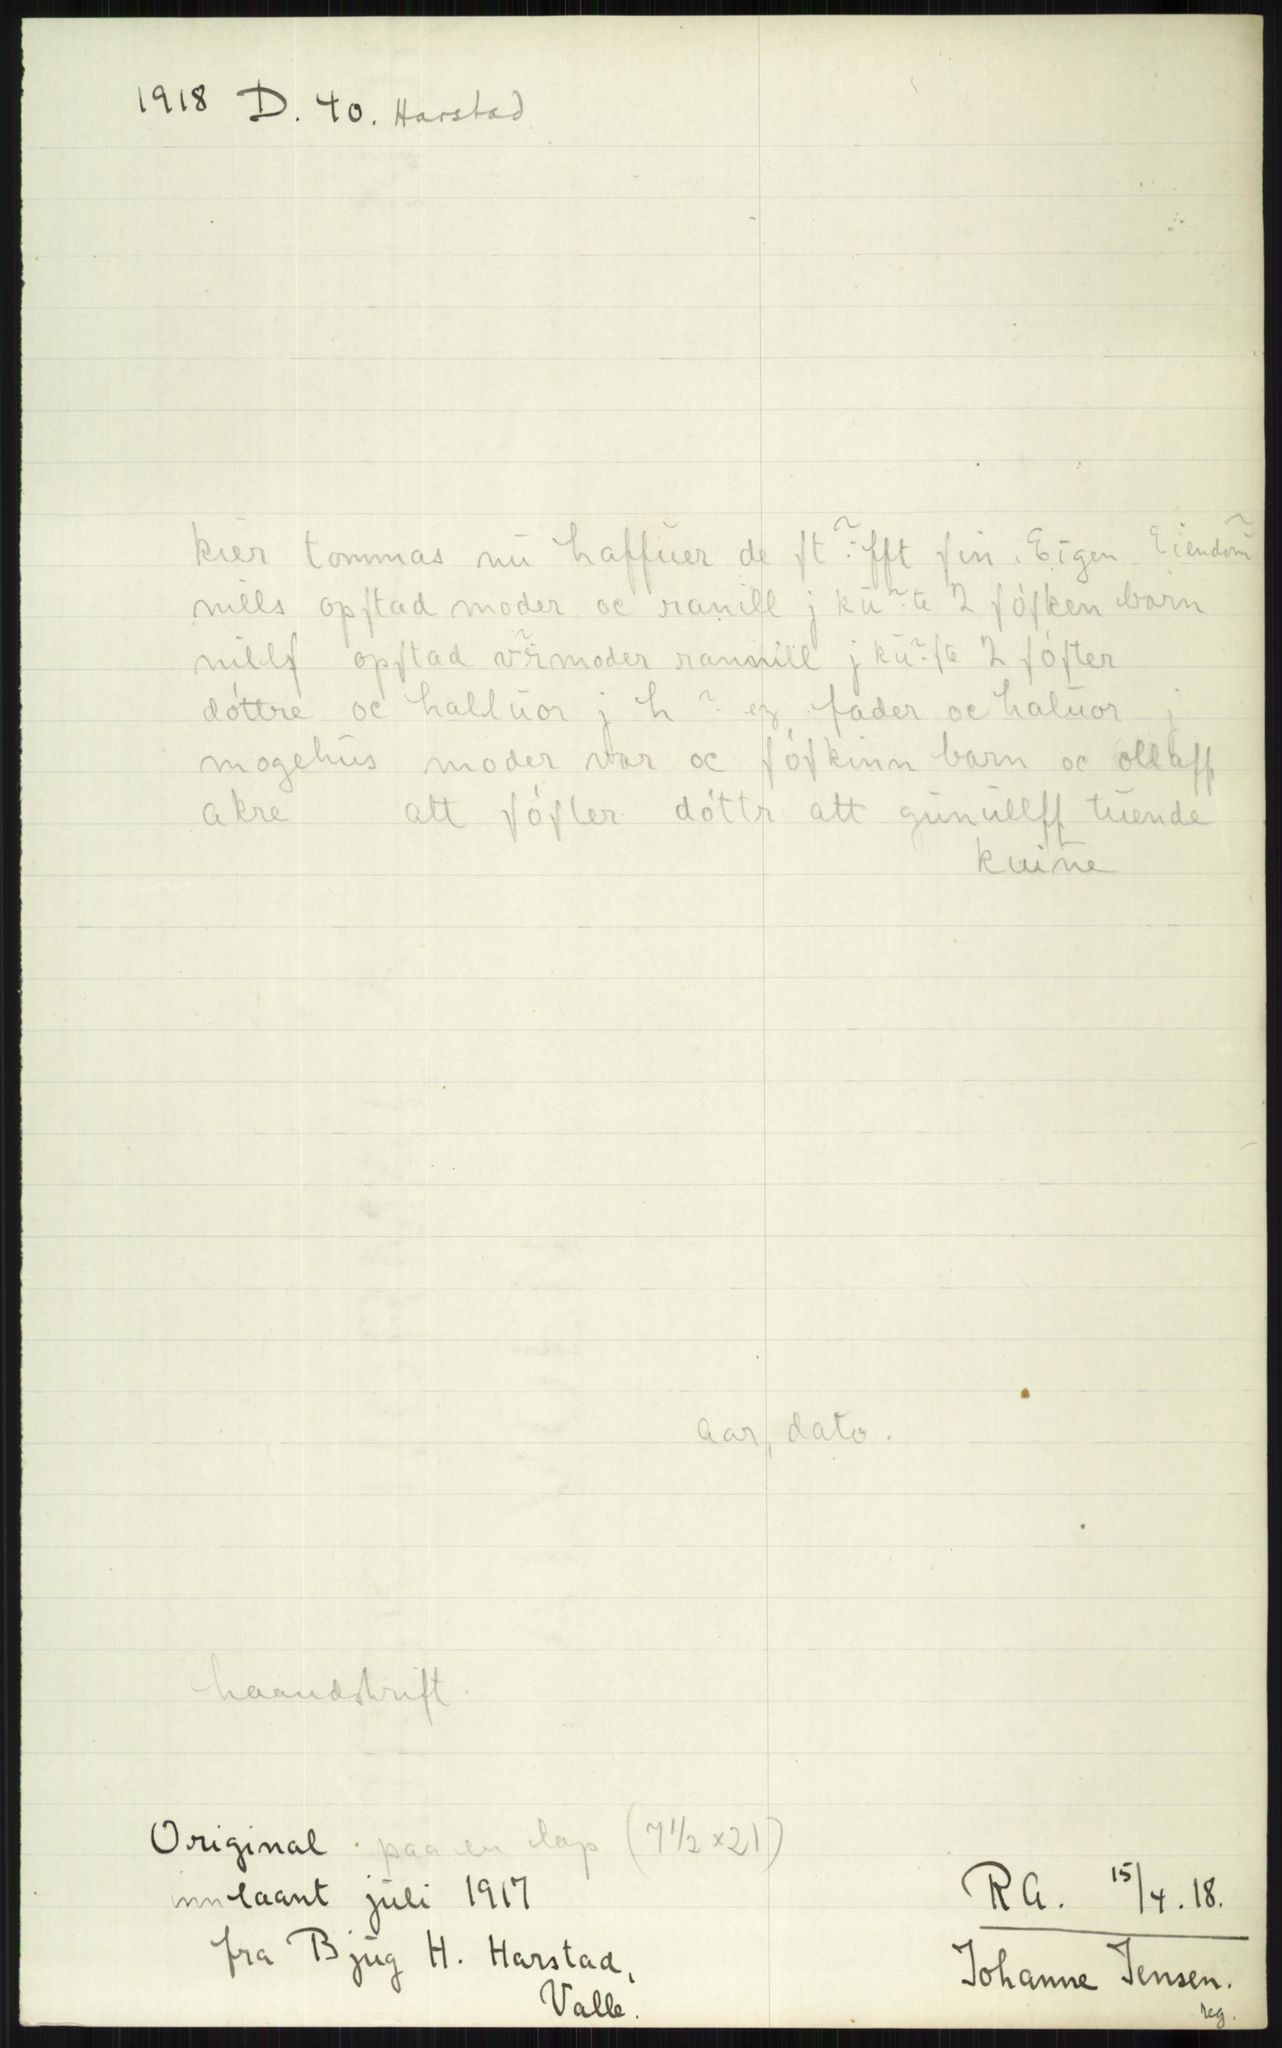 1918 D. 40. Harstad
kier tommas nu haffuer de ſt ffft ſin Eigen Eiendom̃
nills opſtad moder oc ranill j kũ te 2 ſóſken barn
nillſ opſtad moder rannill j kũ ſte 2 ſóſter
dóttre oc halluor j h ez fader oc haluor j
mogehus moder var oc ſóſkinn barn oc ollaff
akre att ſóſter dóttr att gunullff tuende
kuiñe
aar, dato.
haandskrift.
Original paa en lap (7½ x 21)
innlaant juli 1917
fra Bjug H. Harstad,
Valle.
RA. 15/4. 18.
Johanne Jensen.
reg.